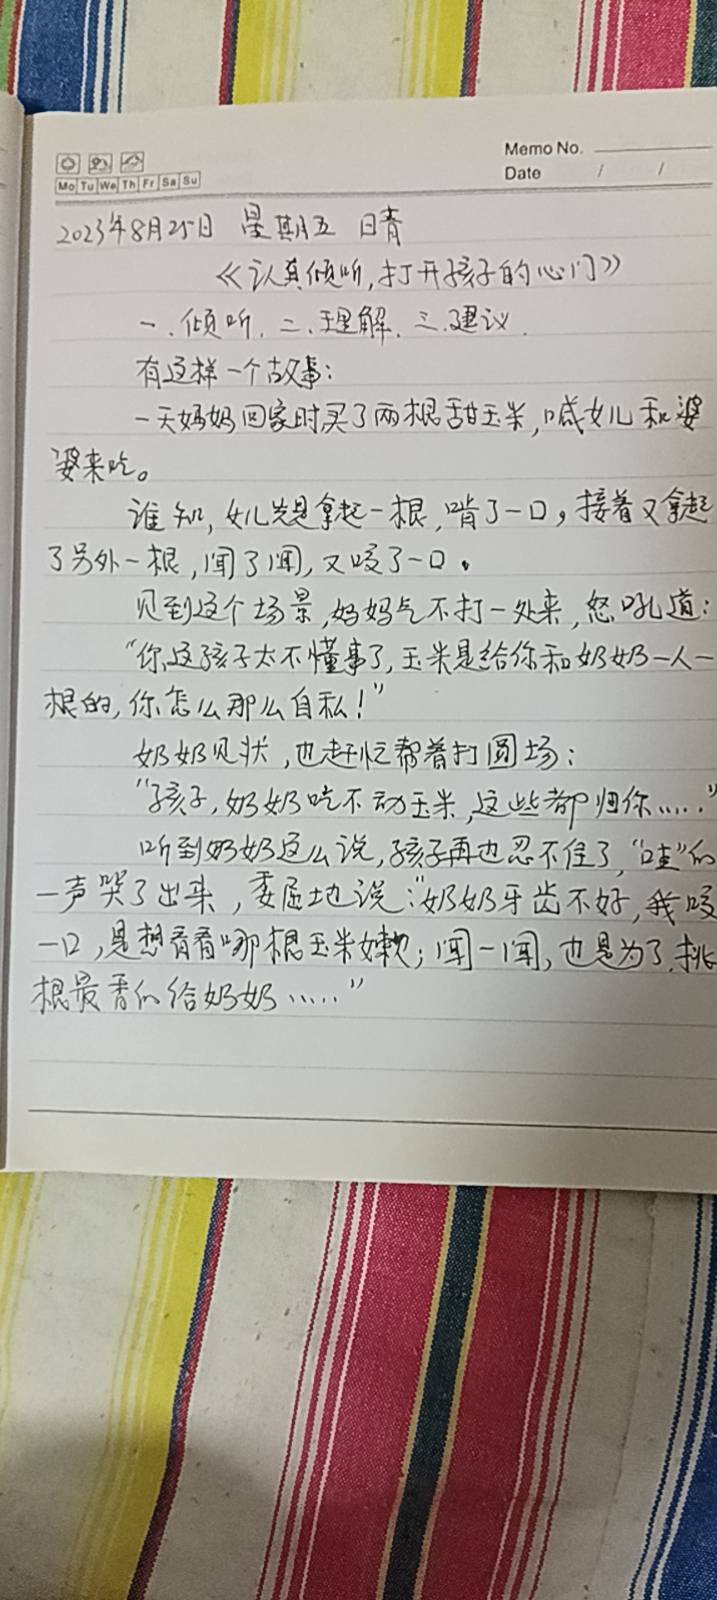 Memo No.
Date / /
Mo Tu We Th Fr Sa Su
2023年8月25日 星期五 晴
《认真倾听,打开孩子的心门》
一.倾听.二.理解.三.建议.
有这样一个故事:
一天妈妈回家时买了两根甜玉米,喊女儿和婆
婆来吃。
谁知,女儿先是拿起一根,啃了一口,接着又拿起
了另外一根,闻了闻,又咬了一口。
见到这个场景,妈妈气不打一处来,怒吼道:
“你这孩子太不懂事了,玉米是给你和奶奶一人一
根的,你怎么那么自私!”
奶奶见状,也赶忙帮着打圆场:
“孩子,奶奶吃不动玉米,这些都归你……”
听到奶奶这么说,孩子再也忍不住了,“哇”的
一声哭了出来,委屈地说:“奶奶牙齿不好,我咬
一口,是想看看哪根玉米嫩;闻一闻,也是为了挑
根最香的给奶奶……”